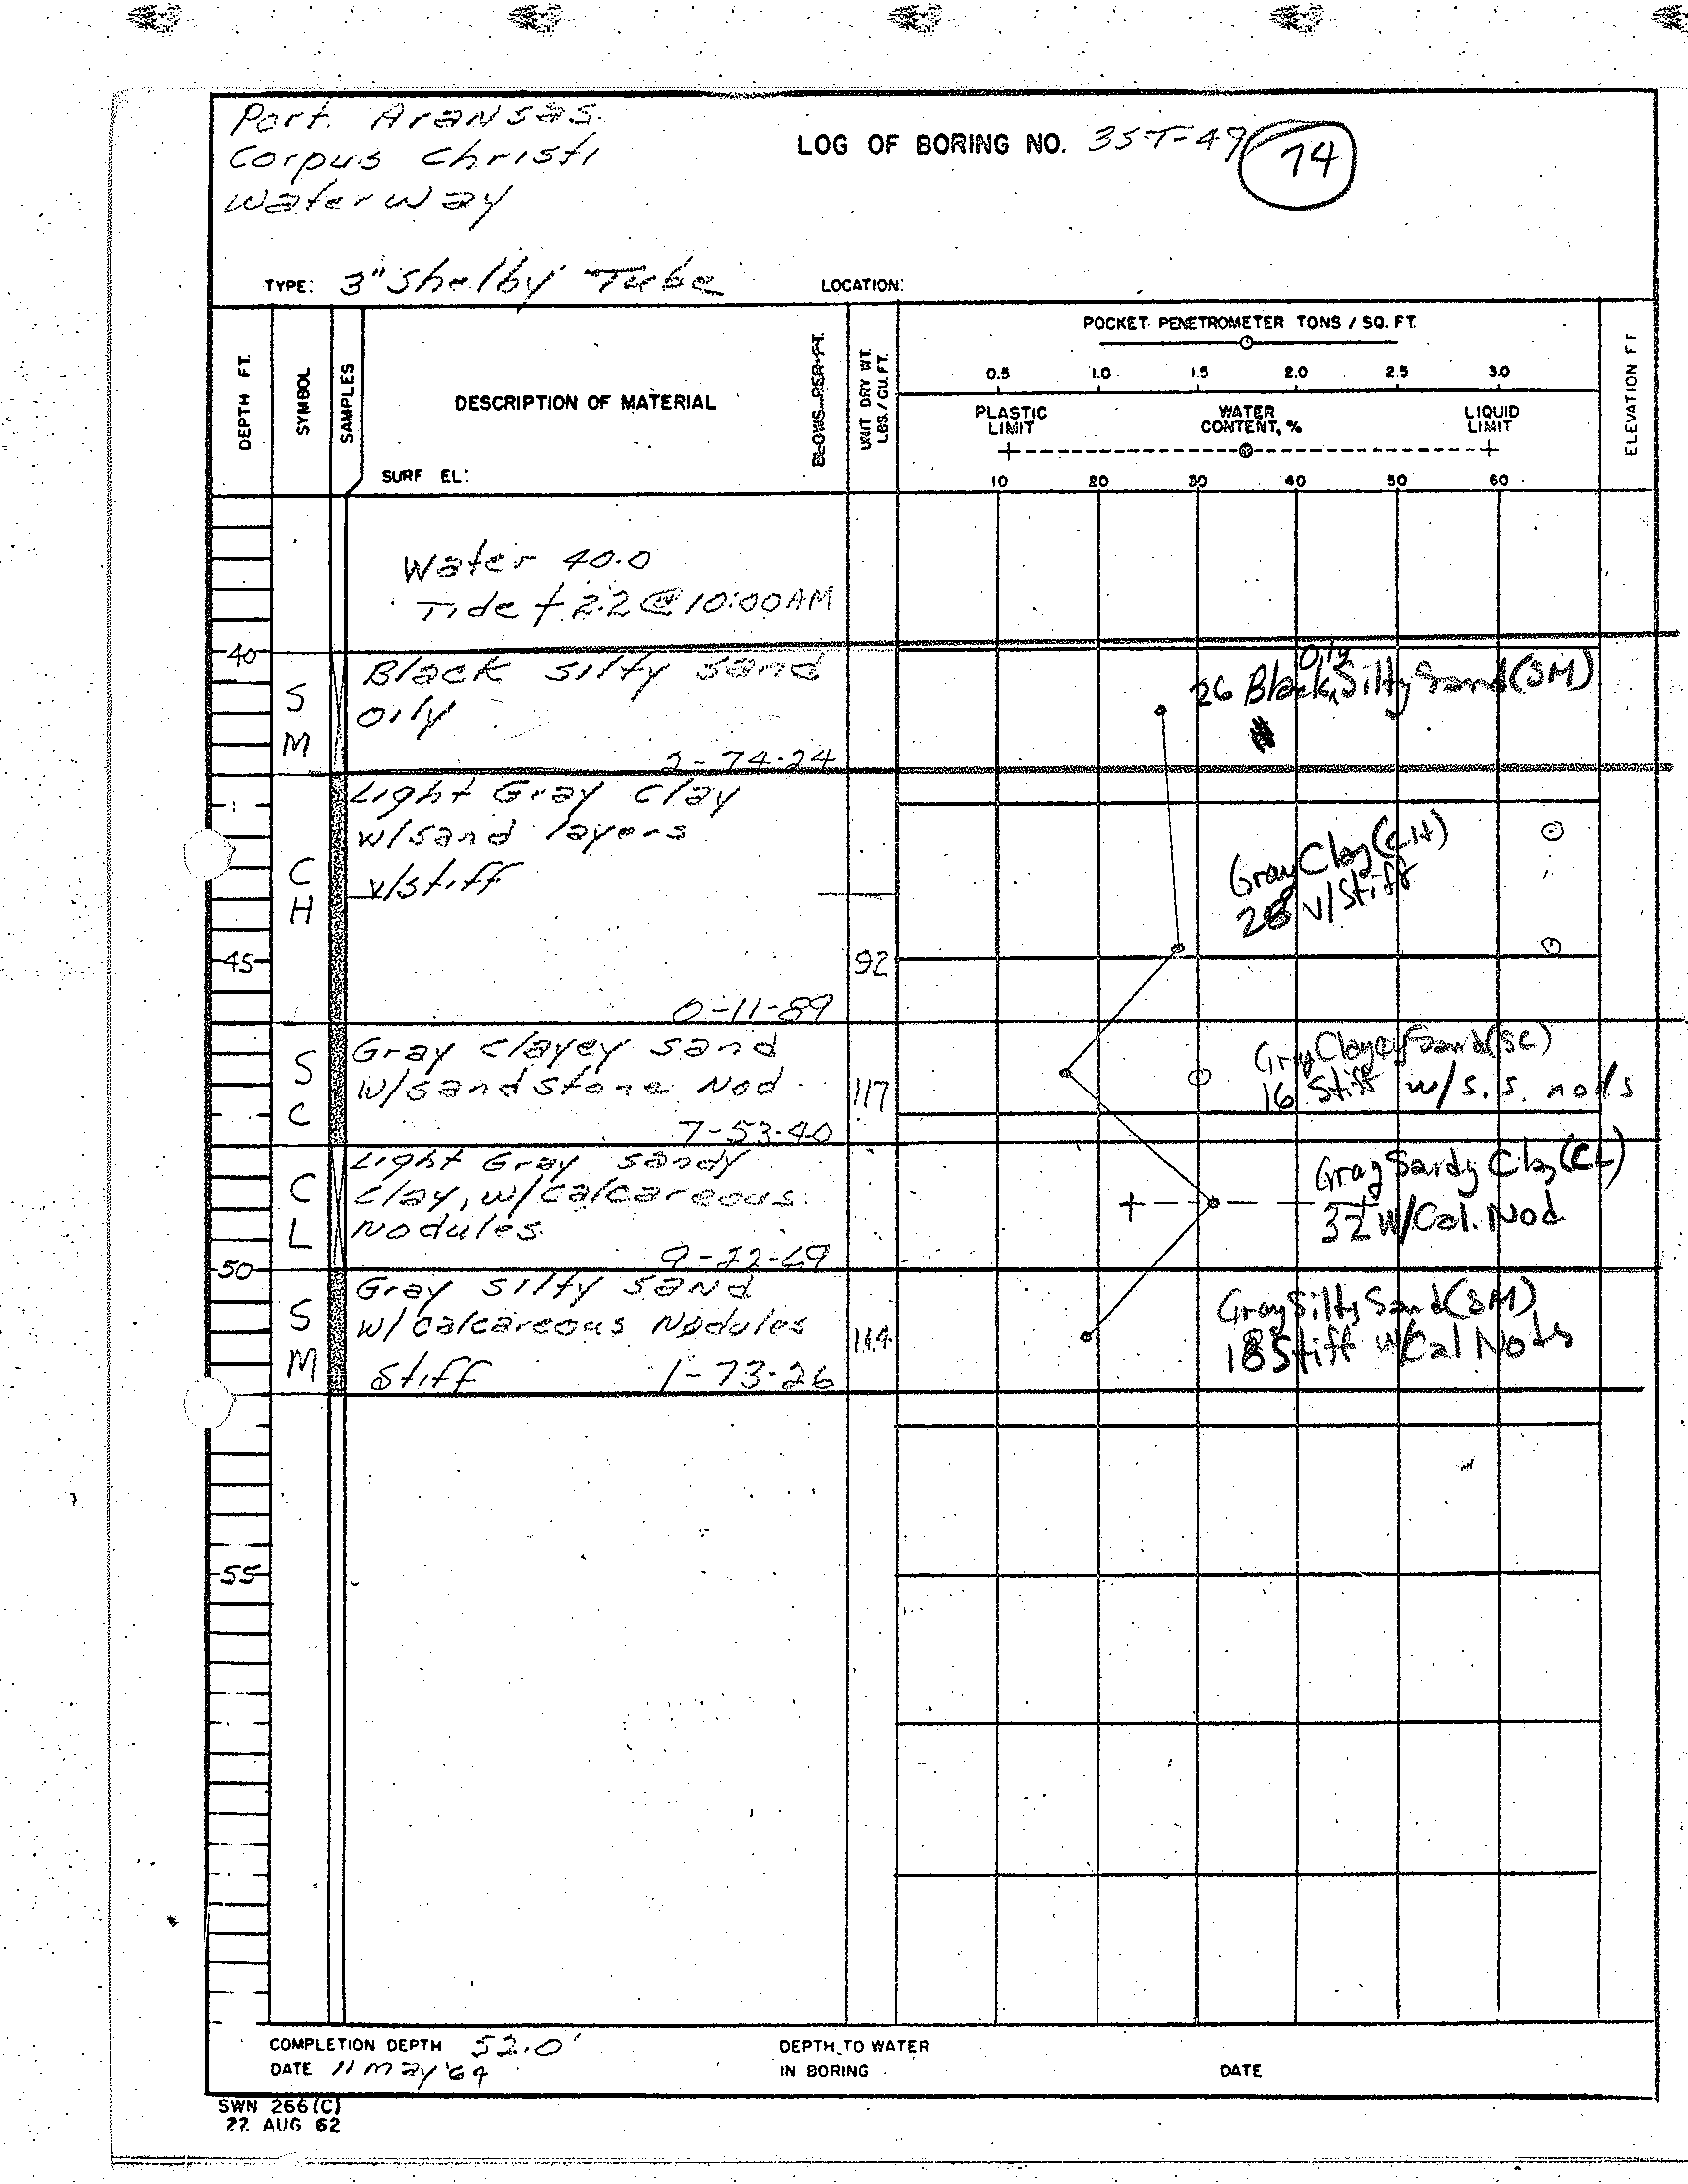 Port Aransas
Corpus Christi
Waterway
LOG OF BORING NO. 3ST-49
74
TYPE: 3" Shelby Tube
LOCATION:
DEPTH FT.
SYMBOL
SAMPLES
DESCRIPTION OF MATERIAL
SURF EL:
BLOWS PER FT.
UNIT DRY WT. LBS./CU.FT.
POCKET PENETROMETER TONS / SQ. FT.
0.5 1.0 1.5 2.0 2.5 3.0
PLASTIC LIMIT
WATER CONTENT, %
LIQUID LIMIT
10 20 30 40 50 60
ELEVATION FT
Water 40.0
Tide + 2.2 @ 10:00 AM
40
SM
Black silty sand
oily
2-74-24
26 Black Oily Silty Sand (SM)
CH
Light Gray Clay
w/sand layers
v/stiff
Gray Clay (CH)
28 v/Stiff
45
92
0-11-89
SC
Gray clayey sand
w/sandstone Nod
117
7-53-40
Gray Clayey Sand (SC)
16 Stiff w/s.s. nods
CL
Light Gray sandy
clay, w/calcareous
Nodules
9-22-69
Gray Sandy Clay (CL)
32 w/Cal. Nod
50
SM
Gray silty sand
w/ calcareous Nodules
stiff 1-73-26
114
Gray Silty Sand (SM)
18 Stiff w/Cal Nods
55
COMPLETION DEPTH 52.0'
DATE 11 May '64
DEPTH TO WATER
IN BORING
DATE
SWN 266(C)
22 AUG 62